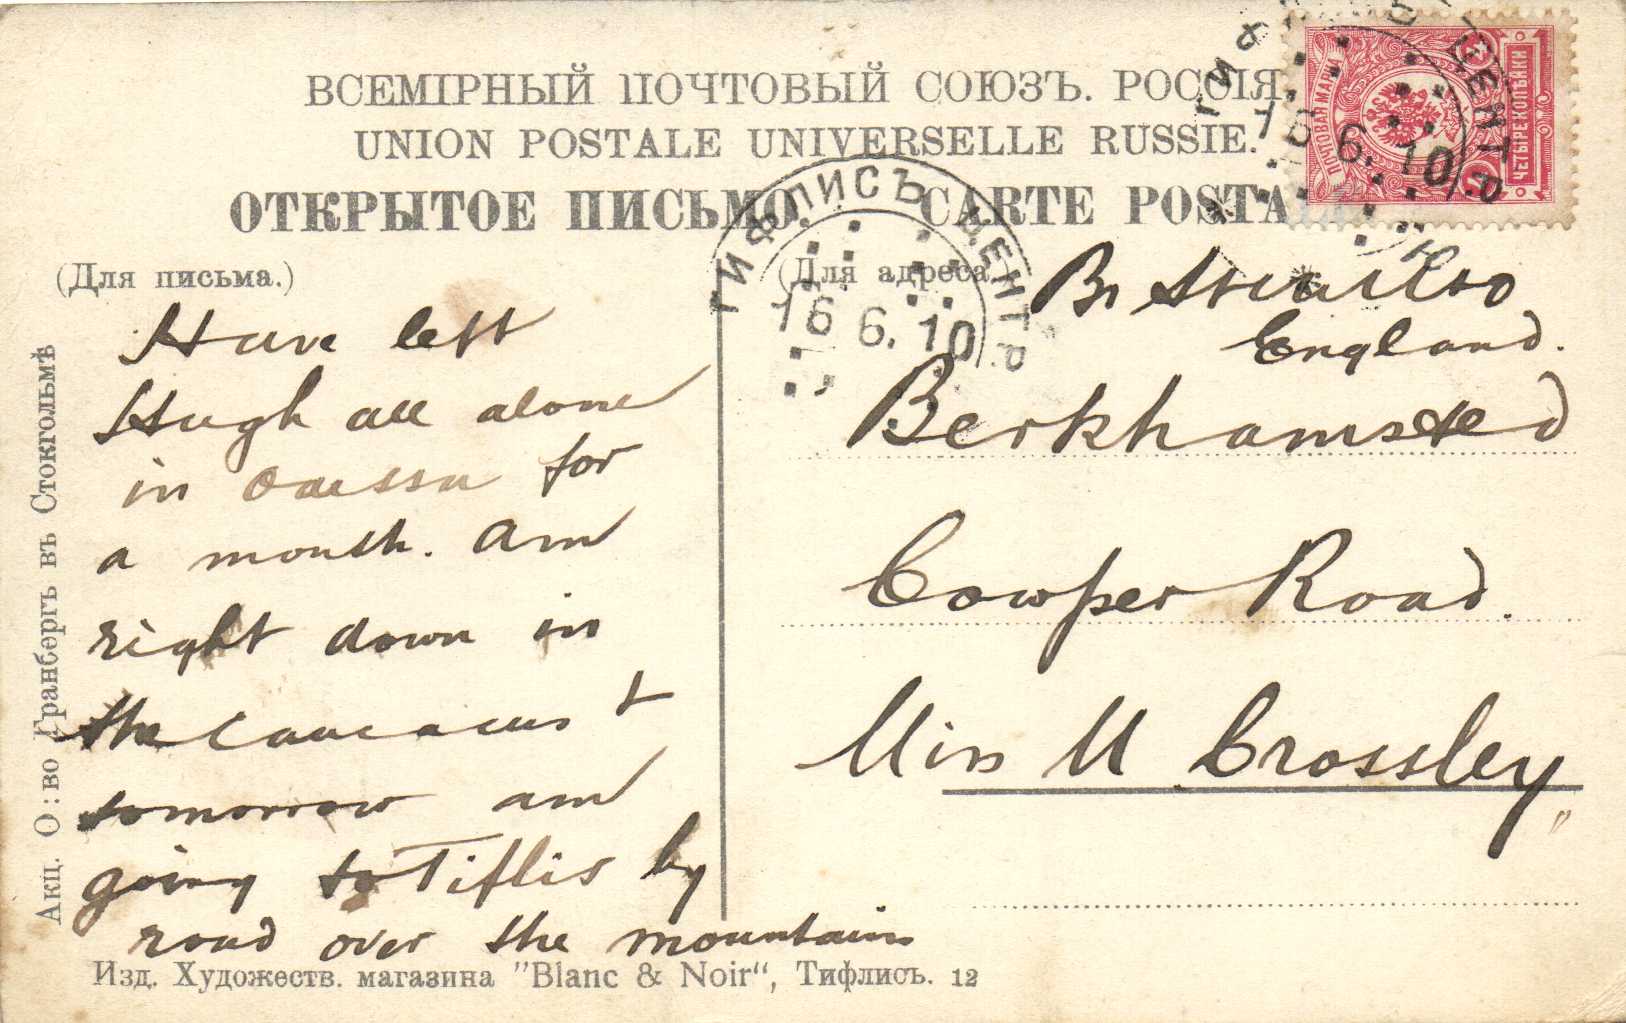 ВСЕМІРНЫЙ ПОЧТОВЫЙ СОЮЗЪ. РОССІЯ.
UNION POSTALE UNIVERSELLE RUSSIE.
ОТКРЫТОЕ ПИСЬМО. CARTE POSTALE
ПОЧТОВАЯ МАРКА
ЧЕТЫРЕ КОПѢЙКИ
ТИФЛИСЪ ЦЕНТР.
16 6. 10
ТИФЛИСЪ ЦЕНТР.
16 6. 10
(Для письма.)
Have left
Hugh all alone
in Odessa for
a month. Am
right down in
the Caucasus +
tomorrow am
going to Tiflis by
road over the mountains
(Для адреса.)
England.
Berkhamsted
Cowper Road.
Miss M Crossley
Акц. О:во Гранбергъ въ Стокгольмѣ
Изд. Художеств. магазина "Blanc & Noir", Тифлисъ. 12